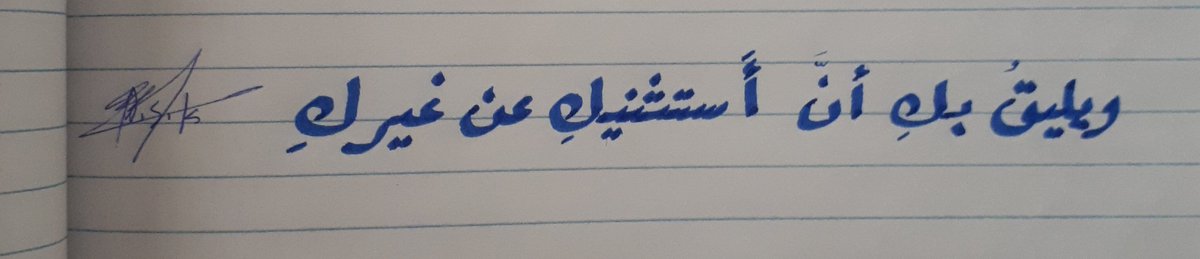 ويليقُ بكِ أنَّ أَستثنيكِ عن غيركِ